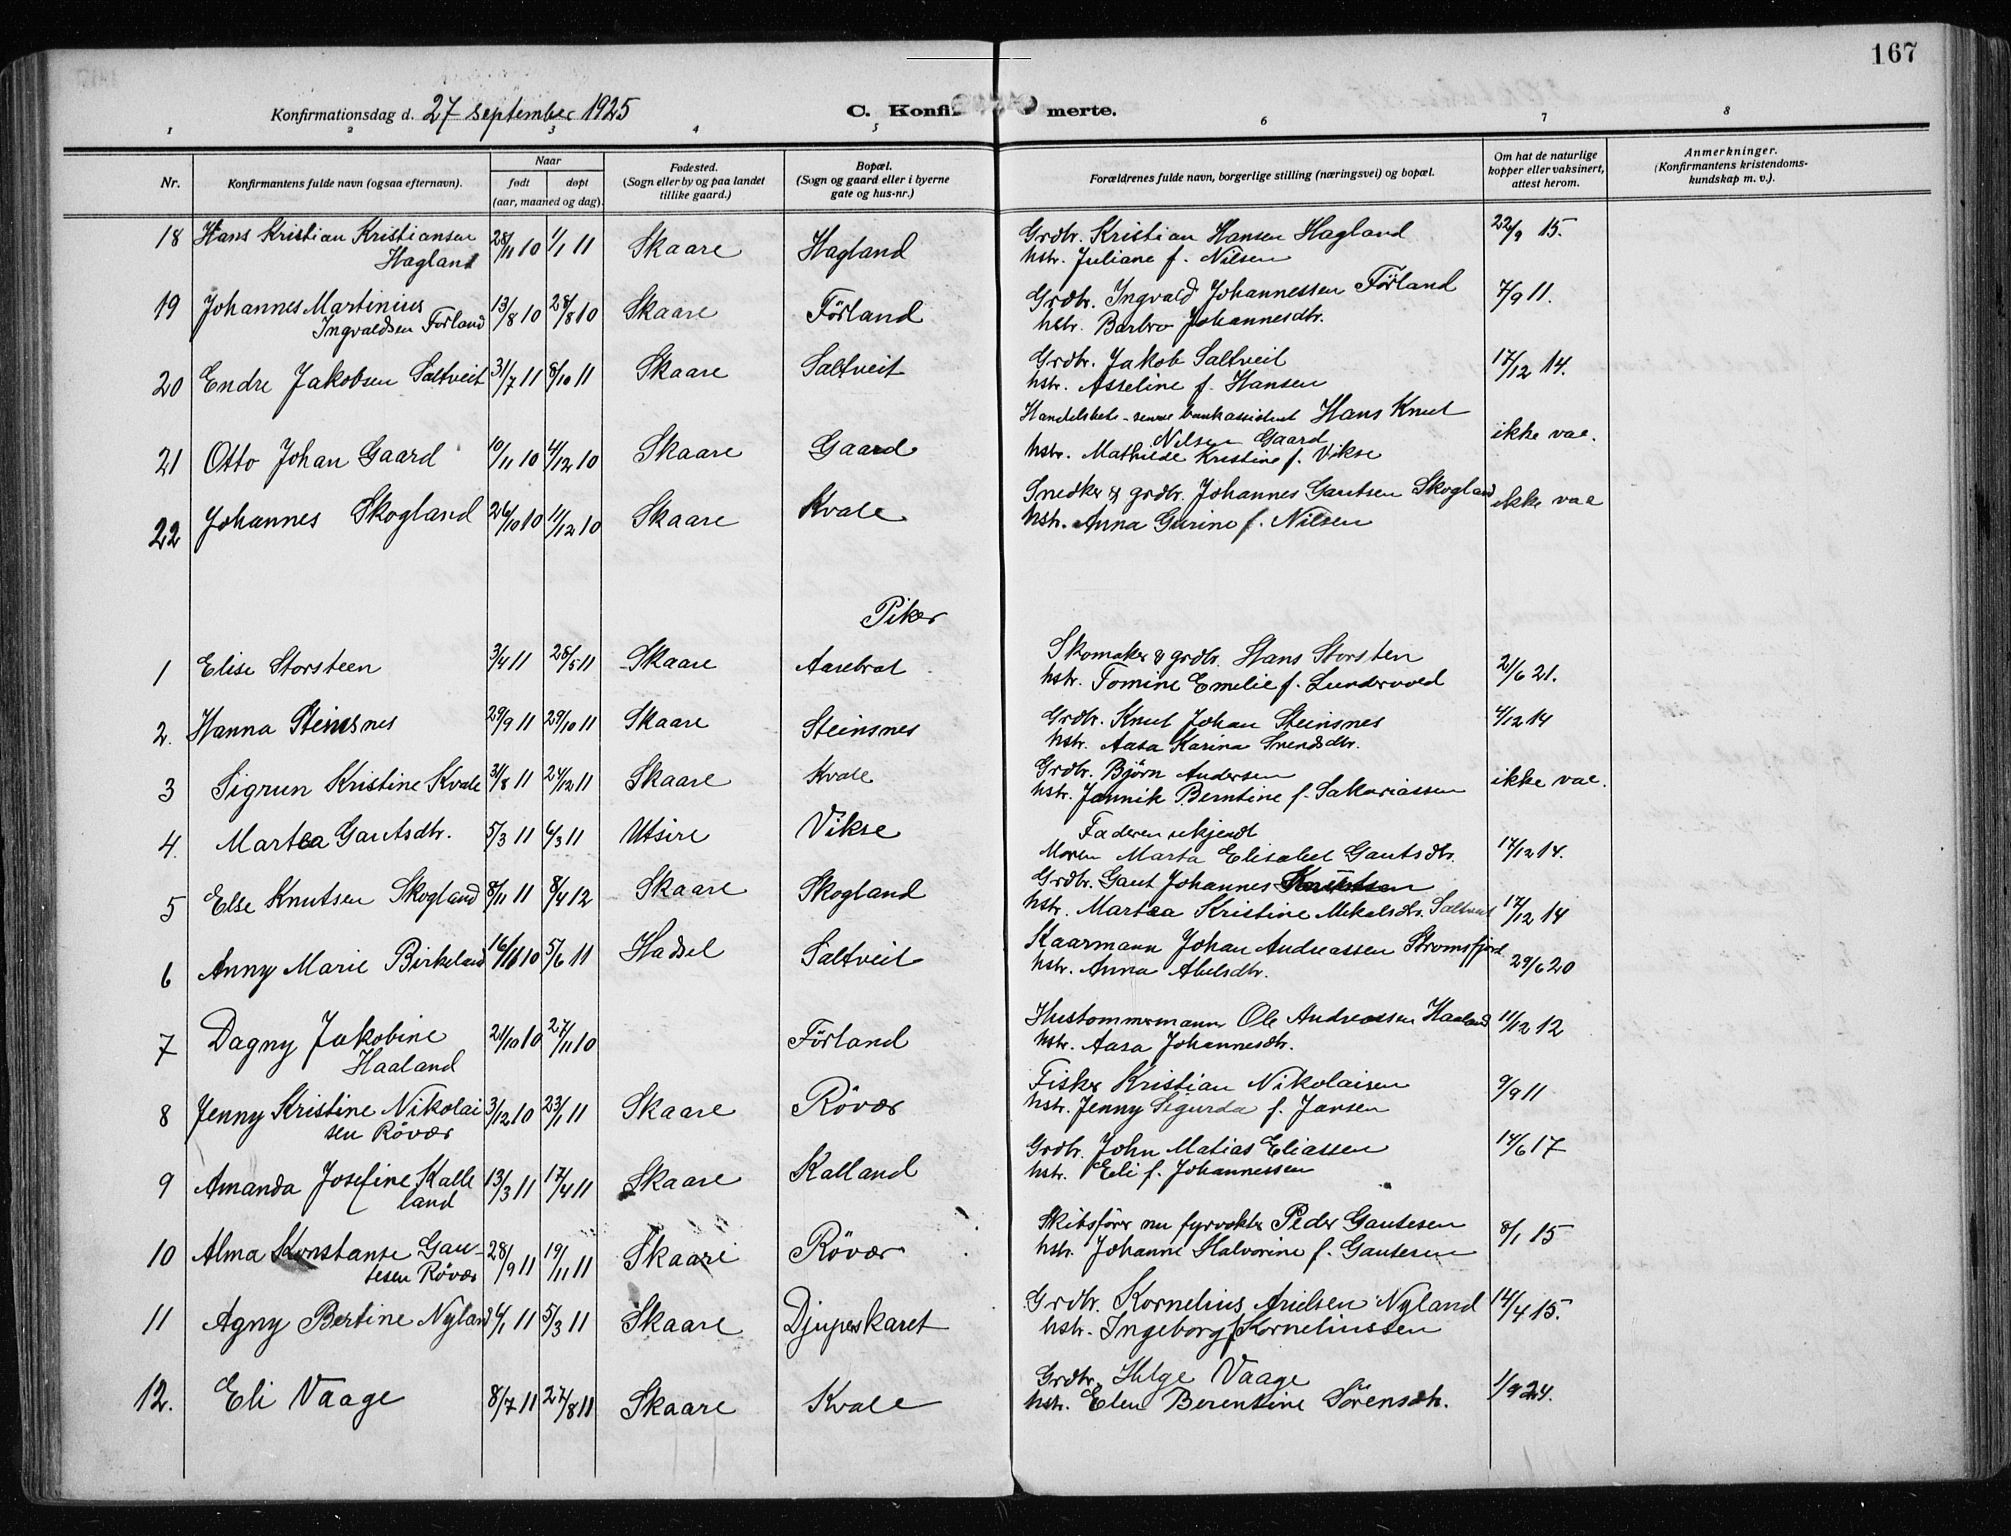 167
Konfirmationsdag d. 27 september 1925
C. Konfirmerte.
1 2 3 4 5 6 7 8
Nr. Konfirmantens fulde navn (ogsaa efternavn). Naar født døpt (aar, maaned og dag). Fødested. (Sogn eller by og paa landet tillike gaard.) Bopæl. (Sogn og gaard eller i byerne gate og hus-nr.) Forældrenes fulde navn, borgerlige stilling (næringsvei) og bopæl. Om hat de naturlige kopper eller vaksinert, attest herom. Anmerkninger. (Konfirmantens kristendoms-kundskap m. v.).
18 Hans Kristian Kristiansen 28/11 10 1/1 11 Skaare Hagland Grdbr. Kristian Hansen Hagland 22/9 15.
Hagland hstr. Juliane f. Nilsen
19 Johannes Martinius 13/8 10 28/8 10 Skaare Förland Grdbr. Ingvald Johannessen Förland 7/9 11.
Ingvaldsen Förland hstr. Barbro Johannesdtr.
20 Endre Jakobsen Saltveit 31/7 11 8/10 11 Skaare Saltveit Grdbr. Jakob Saltveit 17/12 14.
hstr. Asseline f. Hansen
Handelsbets. senere bankassistent Hans Knut
21 Otto Johan Gaard 10/11 10 4/12 10 Skaare Gaard Nilsen Gaard ikke vac.
hstr. Mathilde Kristine f. Vikse
22 Johannes Skogland 26/10 10 11/12 10 Skaare Kvale Snedker & grdbr. Johannes Gautsen Skogland ikke vac
hstr. Anna Gurine f. Nilsen
Piker
1 Elise Storsteen 3/4 11 28/5 11 Skaare Aarebrot Skomaker & grdbr. Hans Storsten 21/6 21.
hstr. Tomine Emelie f. Lundervold
2. Hanna Steinsnes 29/9 11 29/10 11 Skaare Steinsnes Grdbr. Knut Johan Steinsnes 4/12 14
hstr. Aasa Karina Svendsdtr.
3 Sigrun Kristine Kvale 31/8 11 24/12 11 Skaare Kvale Grdbr. Björn Andersen ikke vac.
hstr. Jannik Berntine f. Sakariassen
4. Martea Gautsdtr. 5/3 11 6/3 11 Utsire Vikse Faderen ukjendt
Moren Marta Elisabet Gautsdtr. 17/12 14.
5 Else Knutsen Skogland 8/11 11 8/4 12 Skaare Skogland Grdbr. Gaut Johannes Knutsen
hstr. Martea Kristine Mikalsdtr. Saltveit 17/12 14
6 Anny Marie Birkeland 16/11 10 5/6 11 Hadsel Saltveit Kaarmann Johan Andreassen Stromsfjord
hstr. Anna Abelsdtr. 29/6 20
7 Dagny Jakobine 21/10 10 27/11 10 Förland Hustommermann Ole Andreassen Haaland 11/12 12
Haaland hstr. Aasa Johannesdtr.
8 Jenny Kristine Nikolai 3/12 10 23/1 11 Skaare Rövær Fisker Kristian Nikolaisen 9/9 11
sen Rövær hstr. Jenny Sigurda f. Jansen
9 Amanda Josefine Kalle 13/3 11 17/4 11 Skaare Kalland Grdbr. John Matias Eliassen 14/6 17
land hstr. Eli f. Johannessen
10 Alma Konstanse Gau- 28/9 11 19/11 11 Skaare Rövær Skibsförer nu fyrvokter Peder Gautesen 8/1 15
tesen Rövær hstr. Johanne Halvorine f. Gautesen
11 Agny Bertine Nyland 6/1 11 5/3 11 Skaare Djupeskaret Grdbr. Kornelius Arielsen Nyland 14/4 15.
hstr. Ingeborg f. Korneliussen
12. Eli Vaage 8/7 11 27/8 11 Skaare Kvale Grdbr. Helge Vaage 1/9 24.
hstr. Elen Berentine Sörensdtr.